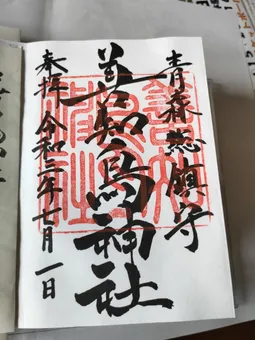 青森総鎮守
善知鳥神社
奉拝 令和三年七月一日